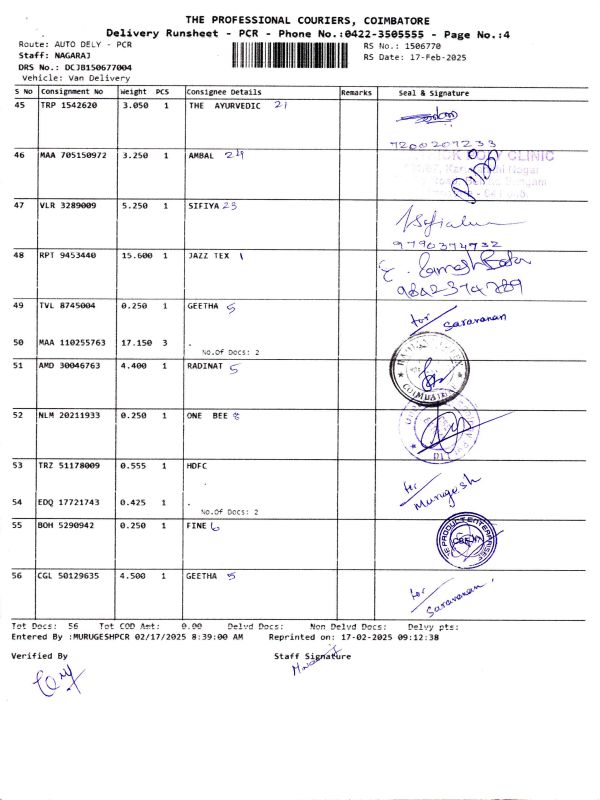 THE PROFESSIONAL COURIERS, COIMBATORE
Delivery Runsheet - PCR - Phone No.:0422-3505555 - Page No.:4
Route: AUTO DELY - PCR RS No.: 1506770
Staff: NAGARAJ RS Date: 17-Feb-2025
DRS No.: DCJB150677004
Vehicle: Van Delivery
S No Consignment No Weight PCS Consignee Details Remarks Seal & Signature
45 TRP 1542620 3.050 1 THE AYURVEDIC 21
7200207233
46 MAA 705150972 3.250 1 AMBAL 24
CLINIC
47 VLR 3289009 5.250 1 SIFIYA 23
9790374732
48 RPT 9453440 15.600 1 JAZZ TEX 1
9842374289
49 TVL 8745004 0.250 1 GEETHA 5
for Saravanan
50 MAA 110255763 17.150 3 .
No.Of Docs: 2
51 AMD 30046763 4.400 1 RADINAT 5
COIMBATORE
52 NLM 20211933 0.250 1 ONE BEE 8
53 TRZ 51178009 0.555 1 HDFC
for Murugesh
54 EDQ 17721743 0.425 1 .
No.Of Docs: 2
55 BOH 5290942 0.250 1 FINE 6
PRODUCT ENTERPRISES
56 CGL 50129635 4.500 1 GEETHA 5
for Saravanan
Tot Docs: 56 Tot COD Amt: 0.00 Delvd Docs: Non Delvd Docs: Delvy pts:
Entered By :MURUGESHPCR 02/17/2025 8:39:00 AM Reprinted on: 17-02-2025 09:12:38
Verified By Staff Signature